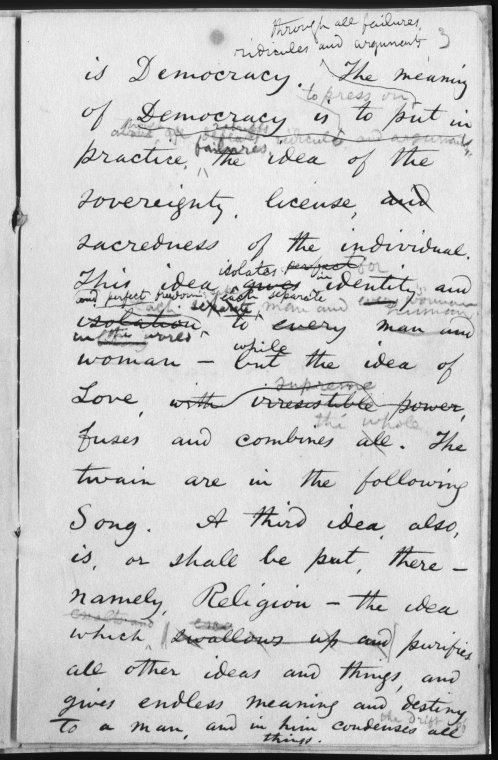 through all failures,
ridicules and arguments 3
is Democracy. The meaning
to press on
of Democracy is to put in
ridicule and arguments,
failures
practice, the idea of the
sovereignty, license, and
sacredness of the individual.
isolates perfect for
This idea gives identity and
and perfect freedom each separate
separate man and woman
human
isolation, to every man and
in the world
while
woman — but the idea of
supreme
Love, with irresistible power,
the whole
fuses and combines all. The
twain are in the following
Song. A third idea, also,
is, or shall be put, there —
namely, Religion — the idea
which, swallows up and purifies
all other ideas and things, and
gives endless meaning and destiny
the drift
to a man, and in him condenses all
things.